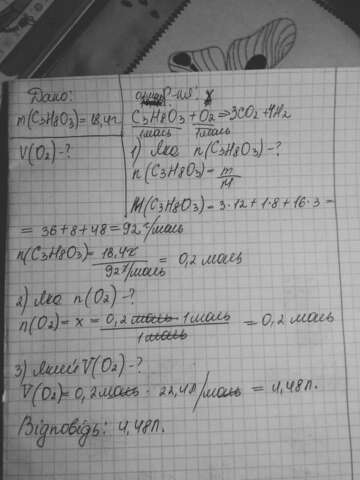 Дано:
m(C3H8O3)=18,4г
V(O2)-?
0,2моль Р-ння: x
C3H8O3+O2⇒3CO2+4H2
1моль 1моль
1) Яка n(C3H8O3)-?
n(C3H8O3)=m/M
M(C3H8O3)=3·12+1·8+16·3=
=36+8+48=92г/моль
n(C3H8O3)=18,4г/92г/моль=0,2моль
2) Яка n(O2)-?
n(O2)=x=0,2моль·1моль/1моль=0,2моль
3) Який V(O2)-?
V(O2)=0,2моль·22,4л/моль=4,48л.
Відповідь: 4,48л.